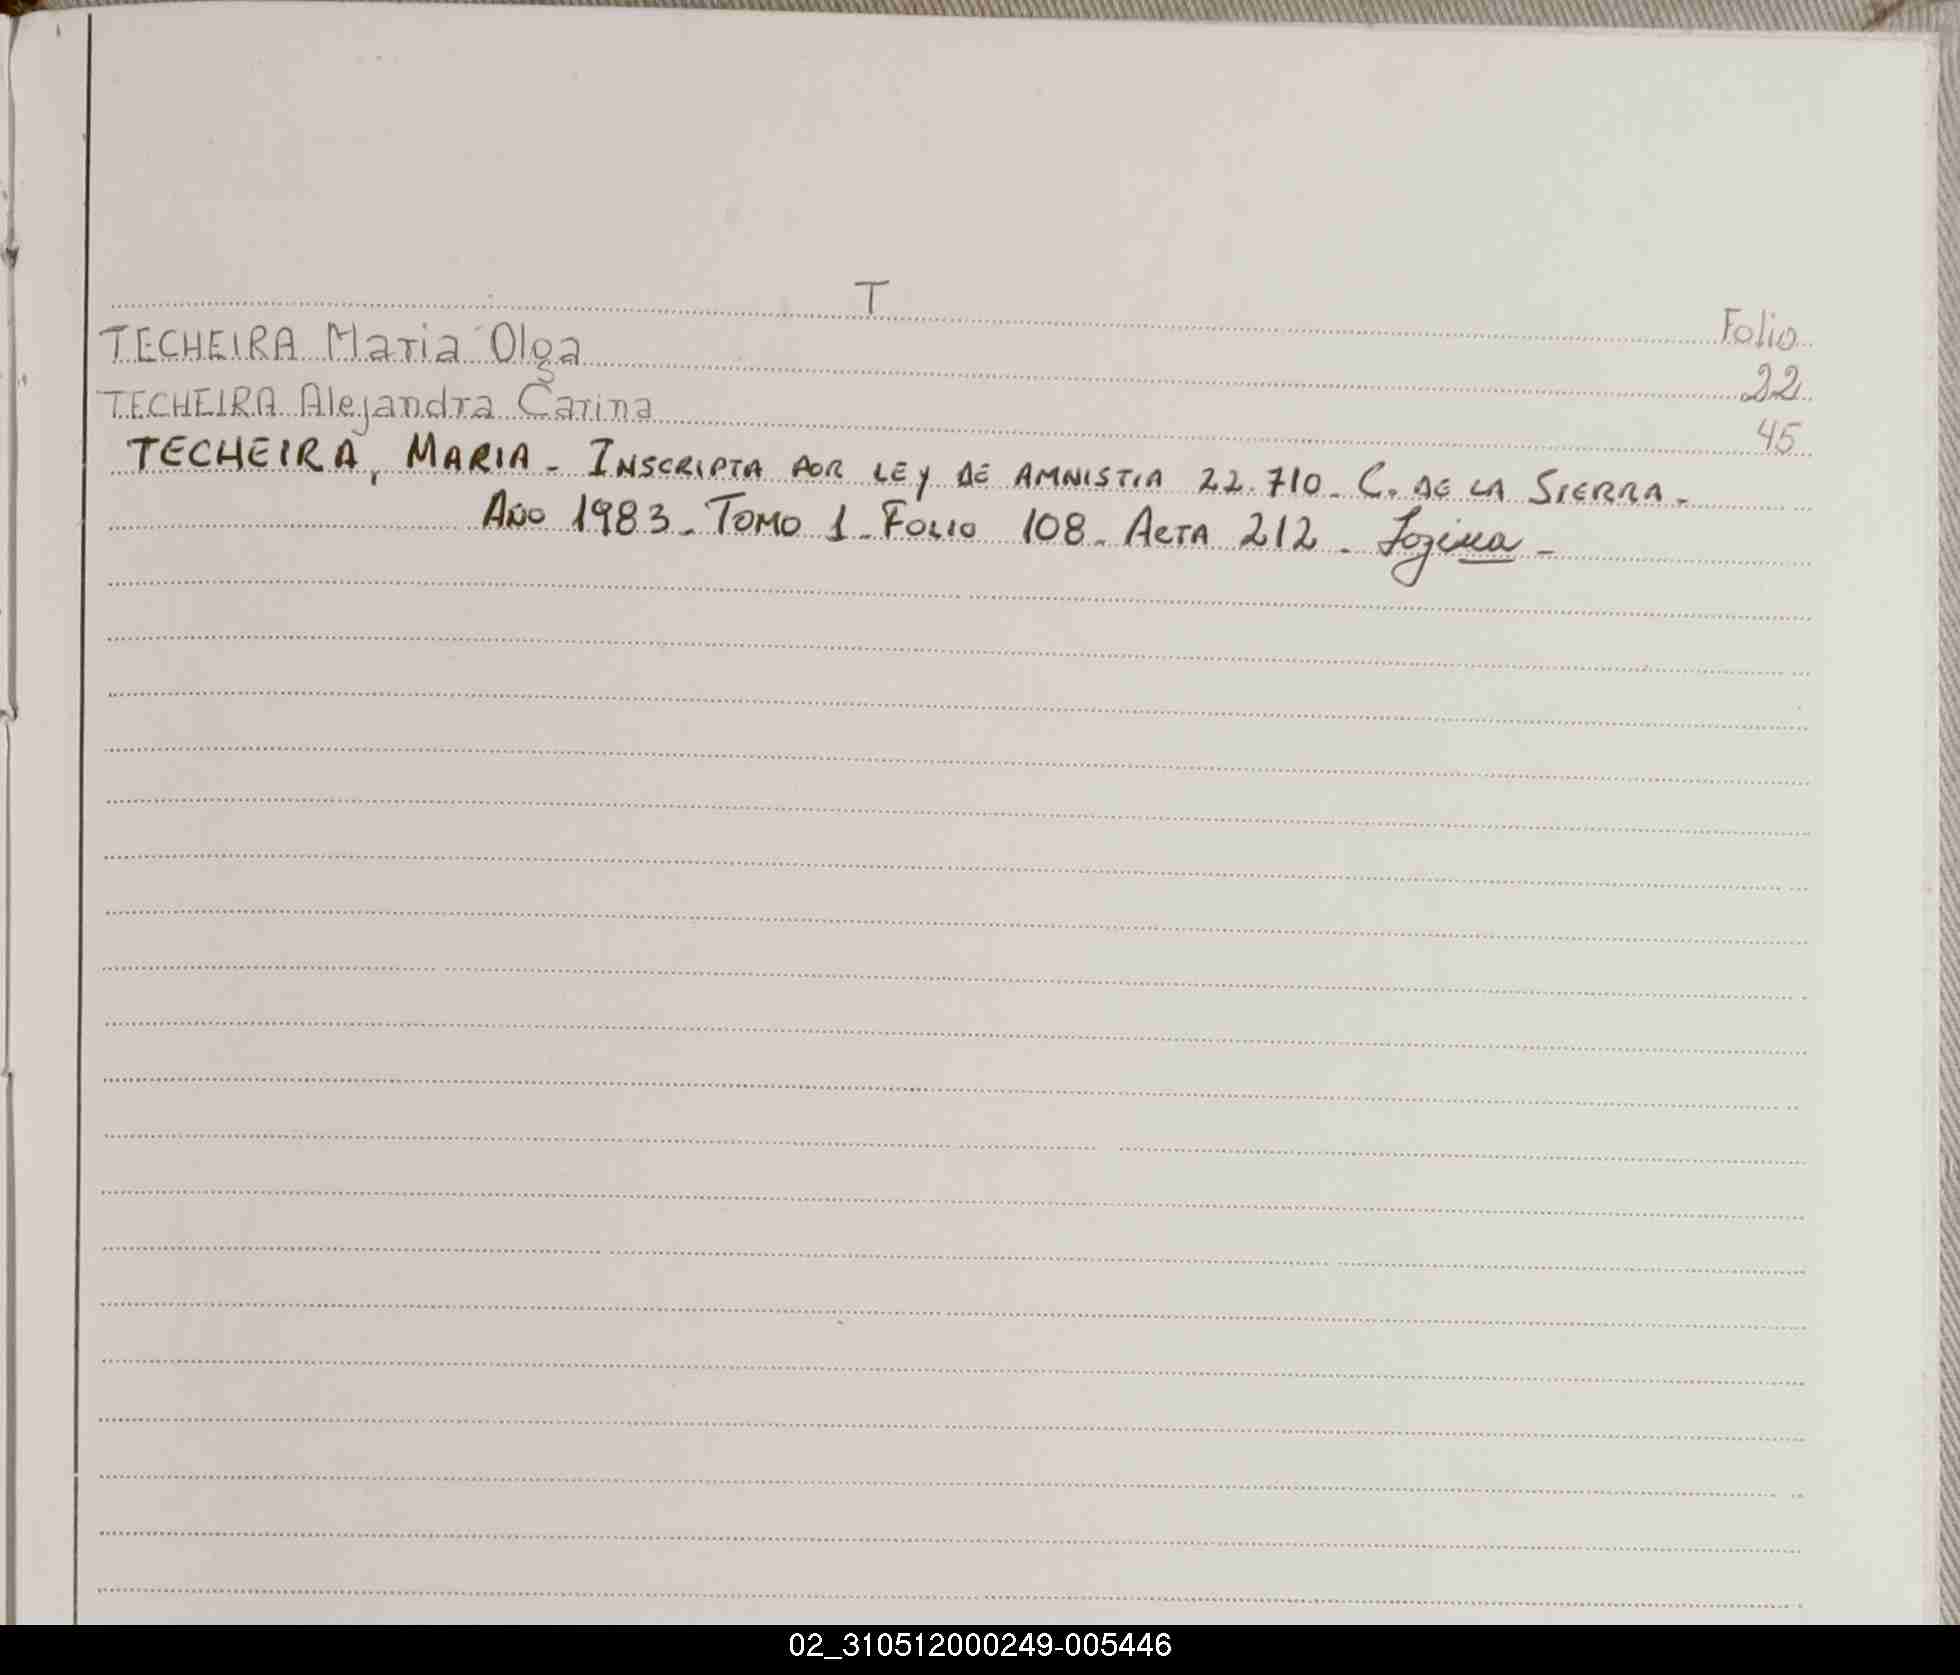 T
Folio
TECHEIRA Maria Olga 22
TECHEIRA Alejandra Carina 45
TECHEIRA, MARIA - INSCRIPTA POR LEY DE AMNISTIA 22.710 - C. DE LA SIERRA -
AÑO 1983 - TOMO 1 - FOLIO 108 - ACTA 212 -
02_310512000249-005446